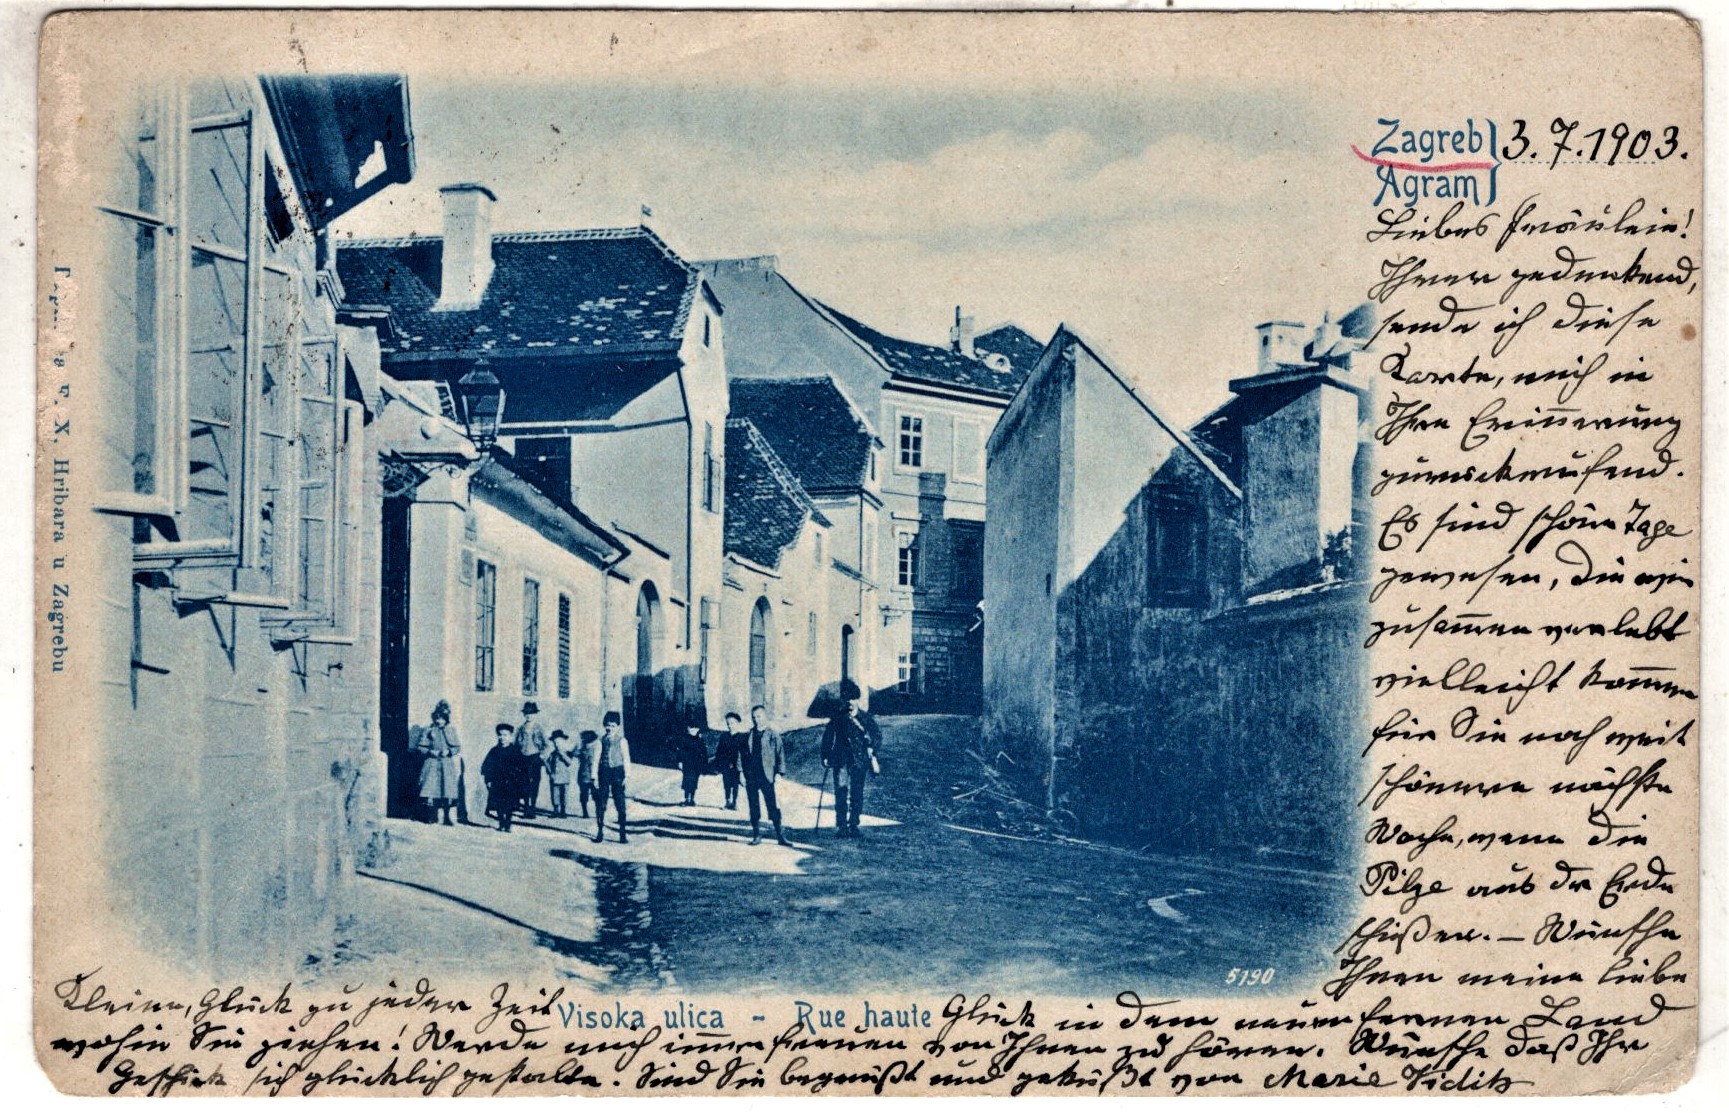 Zagreb
Agram
3.7.1903.
Liebes Fräulein!
Ihrer gedenkend,
sende ich diese
Karte, mich in
Ihre Erinnerung
zurückrufend.
Es sind schöne Tage
gewesen, die wir
zusammen verlebt
vielleicht kommen
für Sie noch weit
schönere nächste
Woche, wenn die
Pilze aus der Erde
schießen. – Wünsche
Ihnen meine liebe
Kleine, Glück zu jeder Zeit
Visoka ulica - Rue haute
Glück in dem neuen fernen Land
wohin Sie ziehen! Werde mich immer freuen von Ihnen zu hören. Wünsche daß Ihr
Geschick sich glücklich gestalte. Sind Sie begrüßt und geküßt von Marie Viditz
5190
X. Hribara u Zagrebu